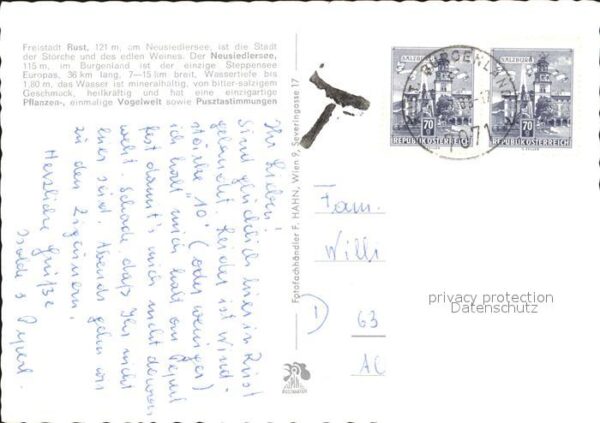 Freistadt Rust, 121 m, am Neusiedlersee, ist die Stadt
der Störche und des edlen Weines. Der Neusiedlersee,
115 m, im Burgenland ist der einzige Steppensee
Europas, 36 km lang, 7—15 km breit, Wassertiefe bis
1,80 m, das Wasser ist mineralhältig, von bitter-salzigem
Geschmack, heilkräftig und hat eine einzigartige
Pflanzen-, einmalige Vogelwelt sowie Pusztastimmungen
Ihr Lieben!
Sind glücklich hier in Rust
gelandet. Leider ist Wind-
stärke "10" (oder weniger)
ich halt mich halt am Peperl
fest damit's mich nicht
weht. Schade daß Ihr nicht
hier seid. Abends gehen wir
zu den Zigeunern.
Herzliche Grüße
Isolde & Peperl.
Fotofachhändler F. HAHN, Wien 9, Severingasse 17
Fam.
Willi
D
63
AC
SALZBURG
70
REPUBLIK ÖSTERREICH
SALZBURG
70
REPUBLIK ÖSTERREICH
7071
privacy protection
Datenschutz